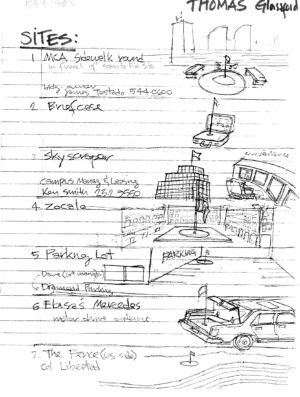 THOMAS Glassford
SITES:
1. MCA Sidewalk round
in front of Santa Fe S.S.
James Tostado 544.0600
2. Briefcase
3. Skyscraper
Campus Manag & Leasing
Ken Smith 232.9550
4. Zocalo
5. Parking Lot
PARKING
Diamond Parking
6. Eloisa's Mercedes
motor drive
7. The Fence (us side)
Col Libertad